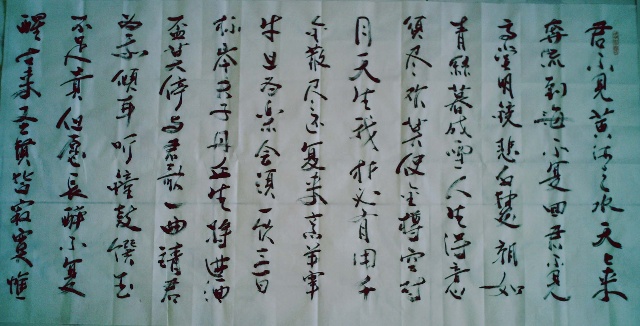 君不見黄河之水天上来
奔流到海不復回君不見
高堂明鏡悲白髮朝如
青絲暮成雪人生得意
須尽欢莫使金樽空对
月天生我材必有用千
金散尽还復来烹羊宰
牛且为乐会须一饮三百
杯岑夫子丹丘生将进酒
杯莫停与君歌一曲請君
为我倾耳听鐘鼓饌玉
不足貴但愿长醉不復
醒古来圣賢皆寂寞惟